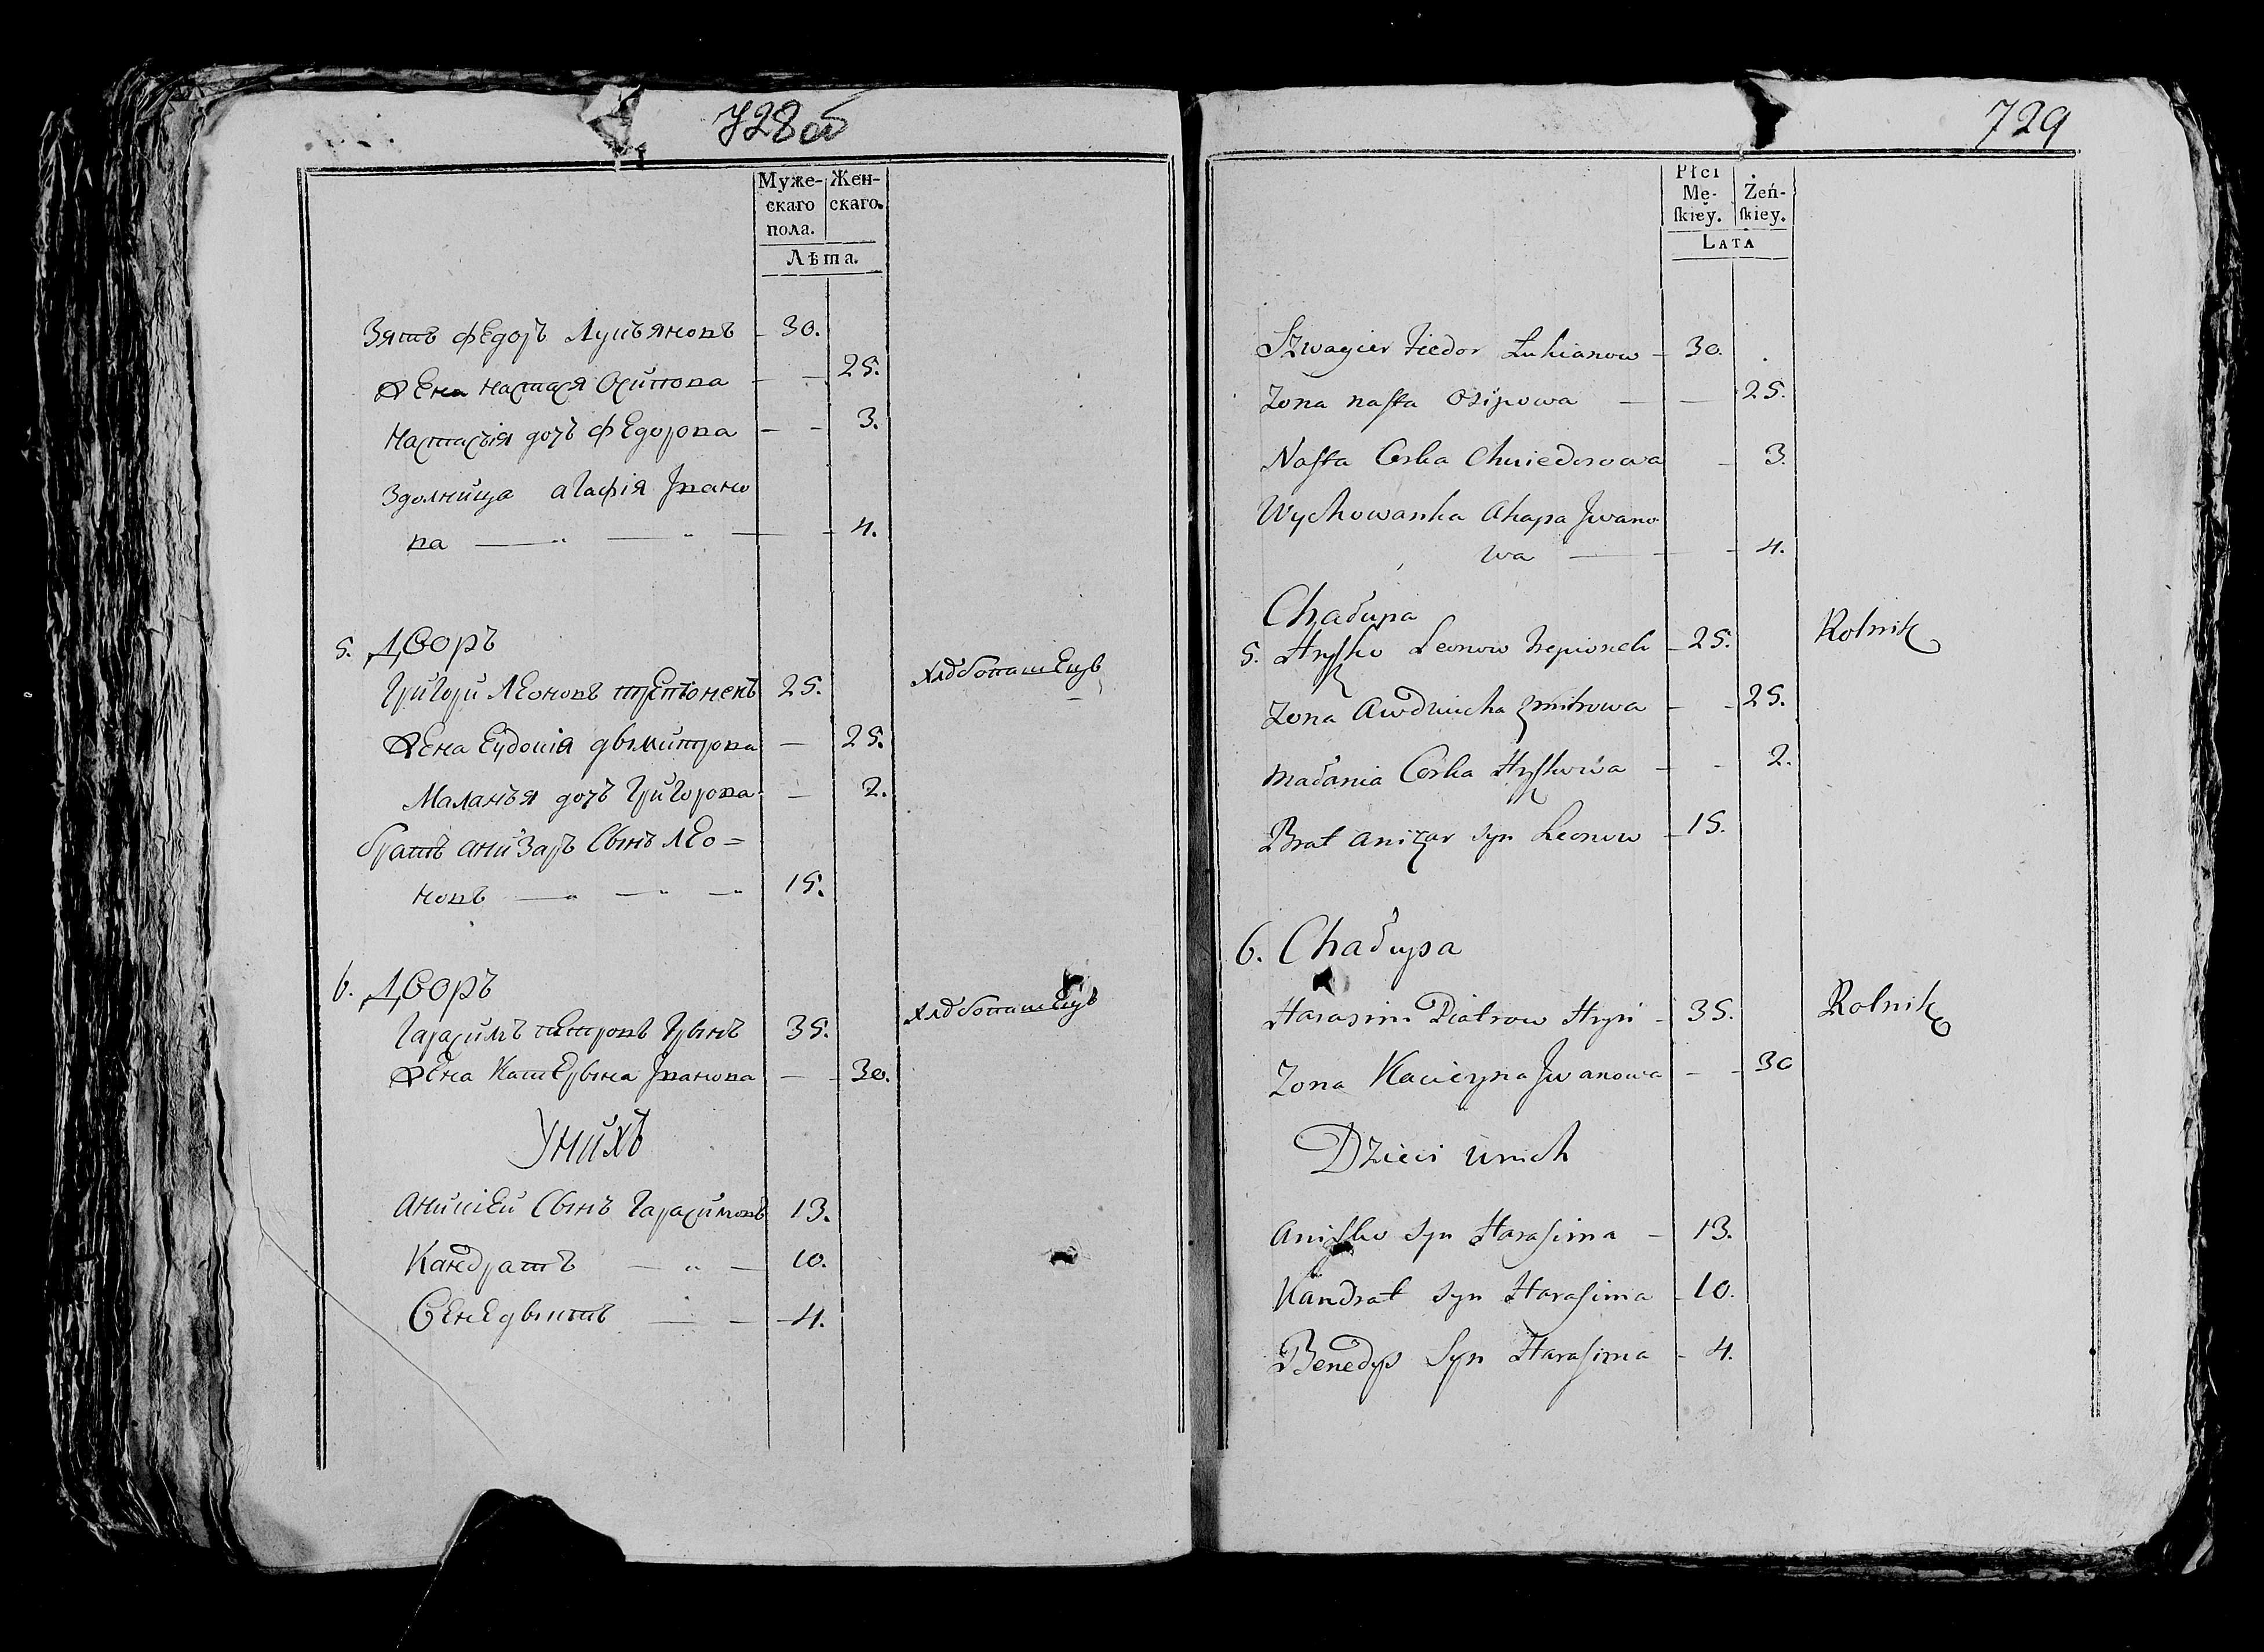 728об
Муже- Жен-
скаго скаго.
пола.
Лѣта.
Зять Федоръ Лукъяновъ - 30.
Жена Настася Осипова - - 25.
Настасъія дочъ Федорова - - 3.
Здолница агафія Ивано
ва - 4.
5. Дворъ
Григори Леоновъ 25. Хлѣбопашецъ
Жена Еудокія дымитрова - 25.
Маланъя дочъ Григорова - 2.
братъ анизаръ Сынъ Лео=
новъ 15.
6. Дворъ
Гарасимъ петровъ 35. Хлѣбопашецъ
Жена Катерына Иванова - - 30.
Унихъ
анисіей Сынъ Гарасимовъ 13.
Кандратъ - " - 10.
Бенедыктъ - - 4.
729
Płci
Mę- Żeń-
skiey. skiey.
LATA
Szwagier Fiedor Łukianow - 30.
Zona nasta Osipowa - - 25.
Nasta Corka Chwiedorowa - 3.
Wychowanka Ahapa Jwano
wa - 4.
Chałupa
5. Hrysko Leonow - 25. Rolnik
Zona Awdziucha Zmitrowa - - 25.
Małania Corka Hryskowa - - 2.
Brat anizar syn Leonow - 15.
6. Chałupa
Harasim Piatrow Hryń - 35. Rolnik
Zona Kacieryna Jwanowa - - 30
Dzieci unich
anisko syn Harasima - 13.
Kandrat syn Harasima - 10.
Benedys Syn Harasima - 4.